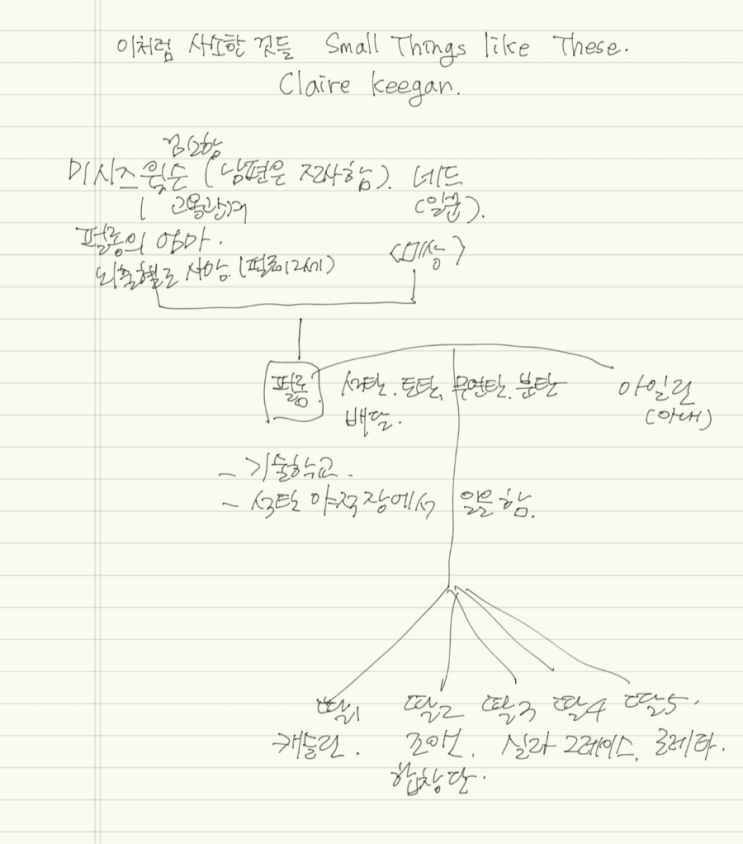 이처럼 사소한 것들 Small Things like These.
Claire Keegan.
미시즈 윌슨 (남편은 전사함). 네드
고용관계 (일꾼).
펄롱의 엄마. <미상>
뇌출혈로 사망 (펄롱 12세)
펄롱 석탄. 토탄. 무연탄. 분탄 아일린
배달. (아내)
- 기술학교.
- 석탄 야적장에서 일을 함.
딸1 딸2 딸3 딸4 딸5.
캐슬린. 조앤. 실라 그레이스, 로레타.
합창단.